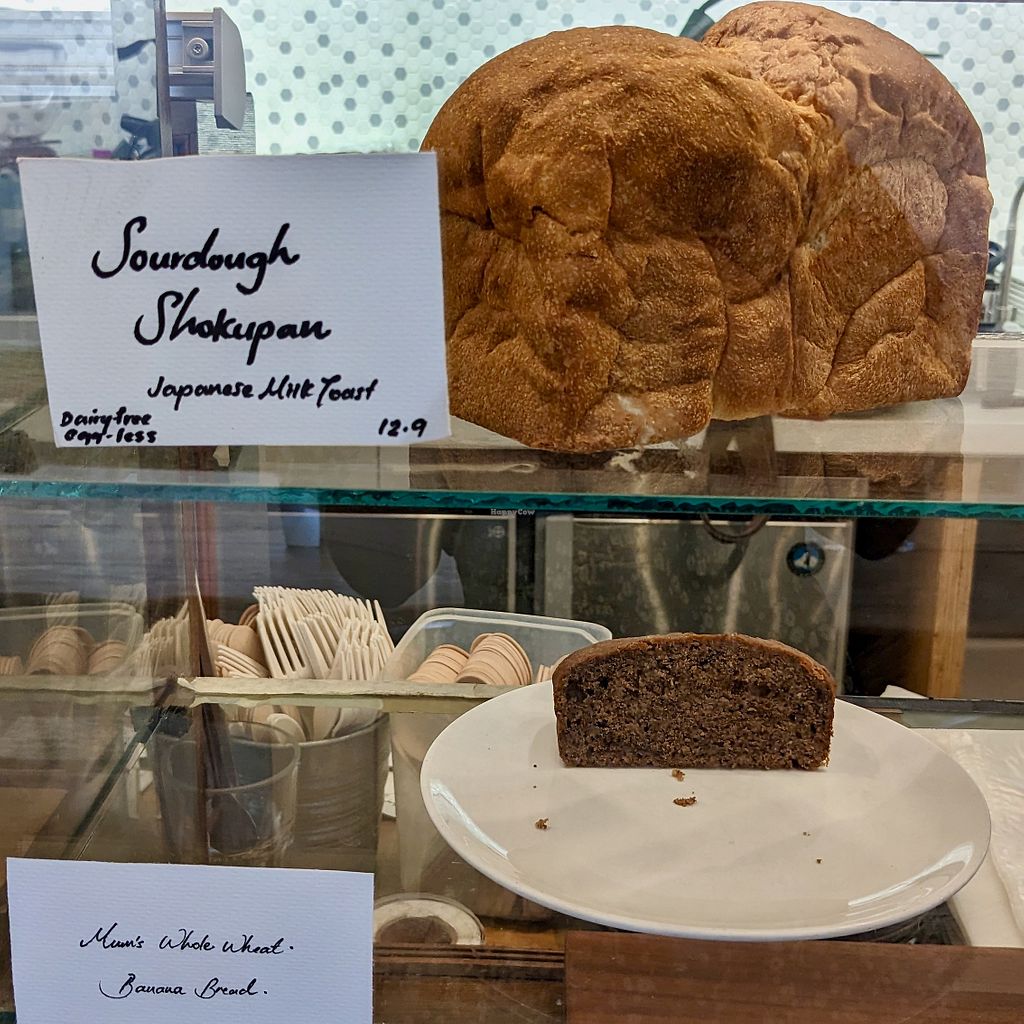 Sourdough
Shokupan
Japanese Milk Toast
Dairy free
egg-less
12.9
HappyCow
Mum's Whole Wheat.
Banana Bread.